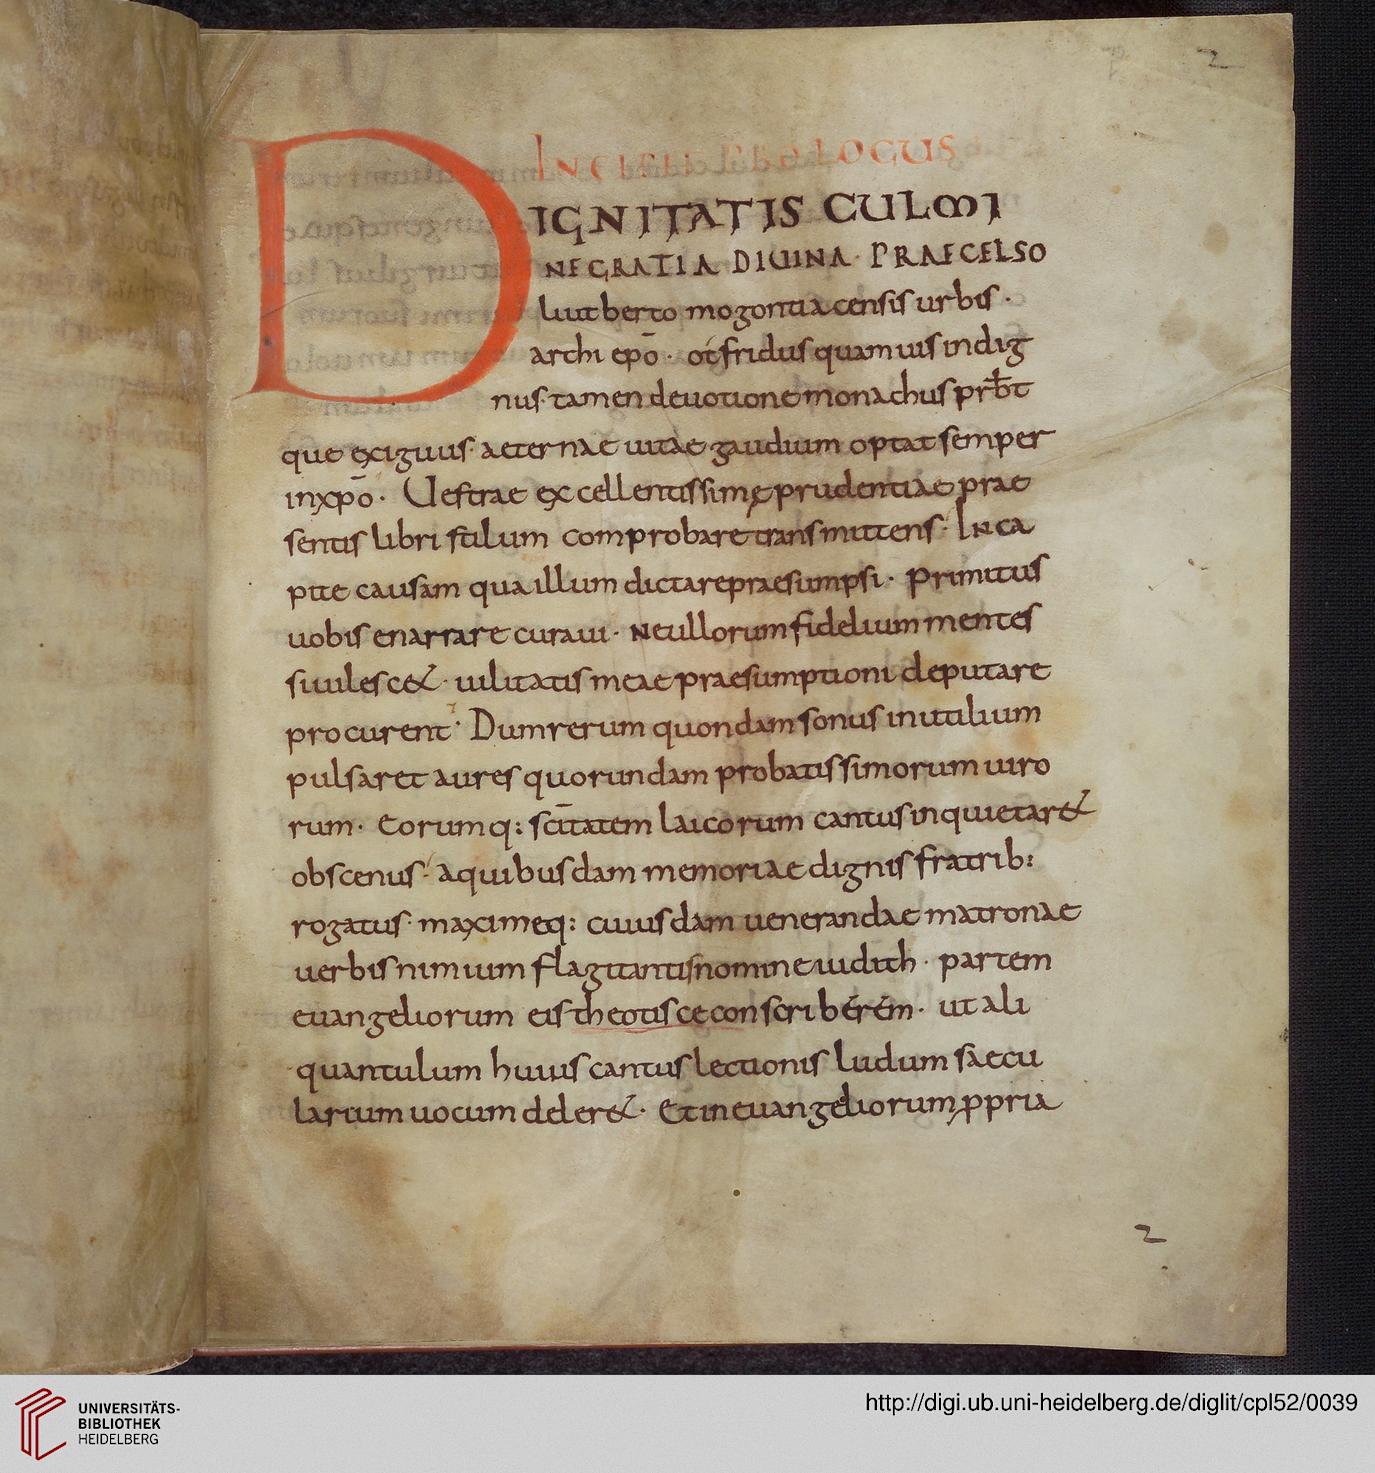 2
INCIPIT PROLOGUS
DIGNITATIS CULMI
NE GRATIA DIUINA · PRAECELSO
liutberto mogontiacensis urbis ·
archi ep̄o · otfridus quamuis indig
nus · tamen deuotione monachus prƀt
que exiguus · aeternae uitae gaudium optat semper
in xp̄o · Uestrae excellentissimę prudentiae prae
sentis libri stilum comprobare transmittens · In ca
pite causam qua illum dictare praesumpsi · primitus
uobis enarrare curaui · Ne ullorum fidelium mentes
si uilesc& · uilitatis meae praesumptioni deputare
procurent · Dum rerum quondam sonus inutilium
pulsaret aures quorundam probatissimorum uiro
rum · eorumq: sc̄itatem laicorum cantus inquietar&
obscenus · a quibusdam memoriae dignis fratrib:
rogatus · maximeq: cuiusdam uenerandae matronae
uerbis nimium flagitantis nomine iudith · partem
euangeliorum eis theotisce conscribérém · ut ali
quantulum huius cantus lectionis ludum saecu
larium uocum deler& · Et in euangeliorum ꝓpria
2
UNIVERSITÄTS-
BIBLIOTHEK
HEIDELBERG
http://digi.ub.uni-heidelberg.de/diglit/cpl52/0039